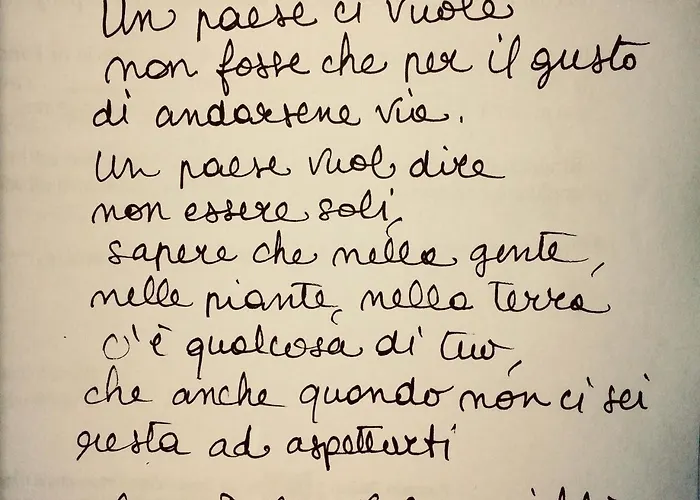 Un paese ci vuole
non fosse che per il gusto
di andarsene via.
Un paese vuol dire
non essere soli,
sapere che nella gente,
nelle piante, nella terra
c'è qualcosa di tuo,
che anche quando non ci sei
resta ad aspettarti